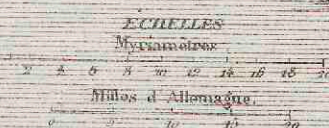 ECHELLES
Myriamètres
2 4 6 8 10 12 14 16 18 20
Milles d'Allemagne.
0 5 10 15 20